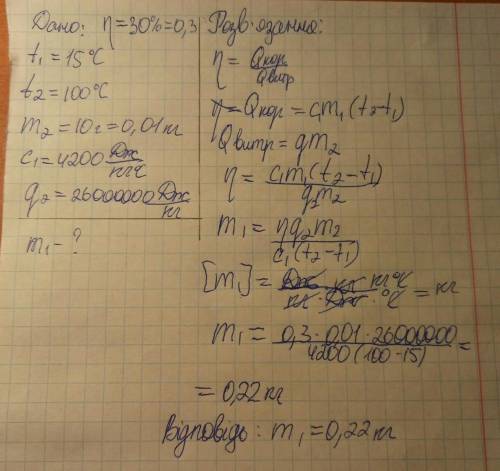 Дано: η=30%=0,3
t₁=15°C
t₂=100°C
m₂=10г=0,01кг
c₁=4200 Дж/кг°C
q₂=26000000 Дж/кг
m₁-?
Розв'язання:
η = Qкор/Qвитр
Qкор=c₁m₁(t₂-t₁)
Qвитр=qm₂
η = c₁m₁(t₂-t₁)/q₂m₂
m₁ = ηq₂m₂/c₁(t₂-t₁)
[m₁] = Дж · кг · кг°K/кг · Дж · °K = кг
m₁ = 0,3·0,01·26000000/4200(100-15) =
= 0,22кг
Відповідь: m₁=0,22кг